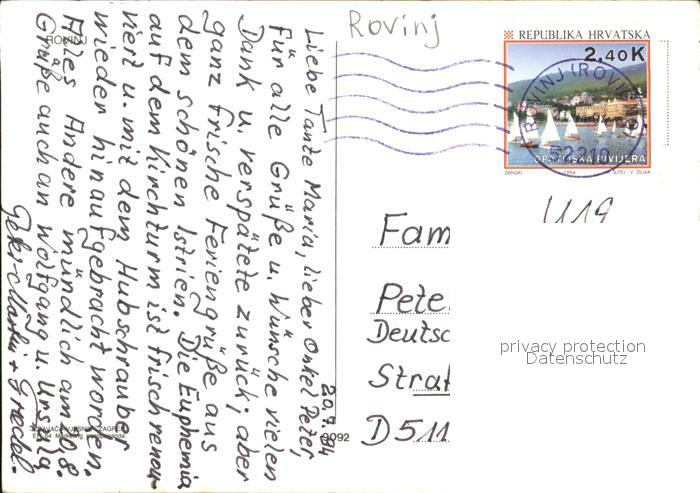 Rovinj
REPUBLIKA HRVATSKA
2,40K
OPATIJSKA RIVIJERA
ZRINSKI
1994
ROVINJ
52210
1119
20.7.94
Liebe Tante Maria, lieber Onkel Peter,
für alle Grüße u. Wünsche vielen
Dank u. verspätete zurück; aber
ganz frische Feriengrüße aus
dem schönen Istrien. Die Euphemia
auf dem Kirchturm ist frisch renou-
viert u. mit dem Hubschrauber
wieder hinaufgebracht worden.
Alles Andere mündlich am
Grüße auch an Wolfgang u. Ursula
ROVINJ
9092
Fam
Pete
Deutsc
Straß
D 511
privacy protection
Datenschutz